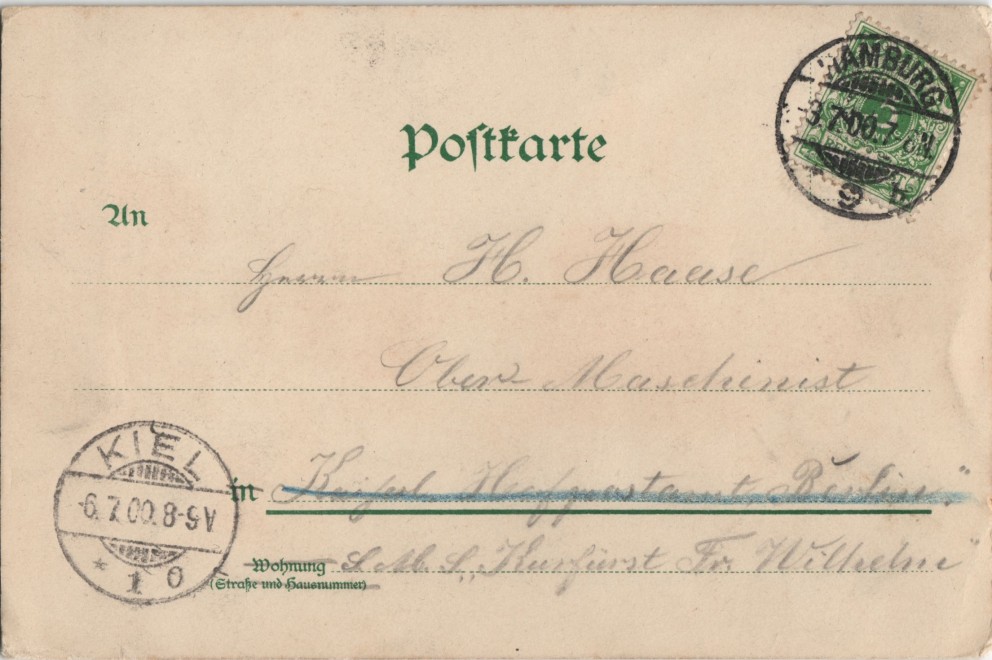 Postkarte
HAMBURG
-3.7.00.7-8N.
9 h
An
Herrn H. Haase
Ober Maschinist
in Kaiserl. Hofpostamt Berlin.
Wohnung S. M. S. „Kurfürst Fr. Wilhelm"
(Straße und Hausnummer)
KIEL
-6.7.00.8-9V
* 1 o